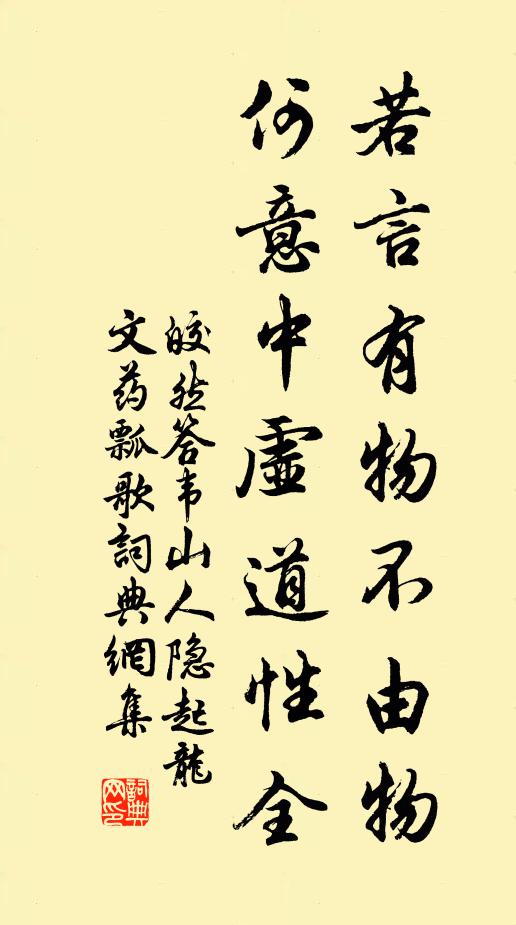 若言有物不由物
何意中虚道性全
皎然答韦山人隐起龍
文药瓢歌詞典網集
詞典
网印